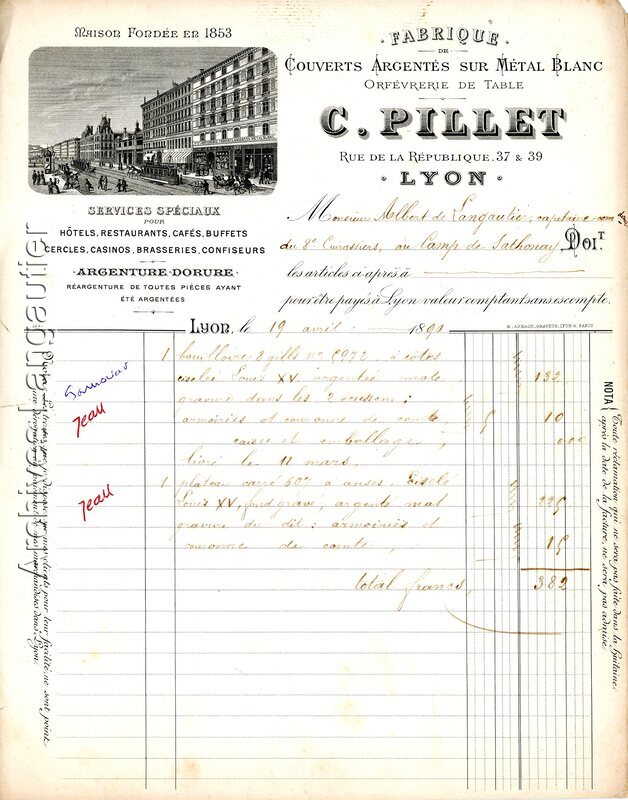 Maison Fondée en 1853
FABRIQUE
DE
Couverts Argentés sur Métal Blanc
Orfévrerie de Table
C. PILLET
Rue de la République, 37 & 39
LYON
SERVICES SPÉCIAUX
POUR
HÔTELS, RESTAURANTS, CAFÉS, BUFFETS
CERCLES, CASINOS, BRASSERIES, CONFISEURS
ARGENTURE · DORURE
RÉARGENTURE DE TOUTES PIÈCES AYANT
ÉTÉ ARGENTÉES
Monsieur Albert de Langautier, capitaine
du 8e Cuirassiers, au Camp de Sathonay DOIT
les articles ci après à
pour être payés à Lyon valeur comptant sans escompte.
Lyon, le 19 avril 1890
1 bouilloire 8 gills no 6972 à côtes
ciselée Louis XV argentée mate 132
gravure dans les 2 écussons :
armoiries et couronne de comte, 10
caisse et emballage,
livré le 11 mars,
1 plateau carré 607 à anses, Ciselé
Louis XV, fond gravé, argenté mat 225
gravure du dit : armoiries et
couronne de comte, 15
total francs, 382
Samovar
Jean
Jean
NOTA
Toute réclamation qui ne sera pas faite dans la huitaine,
après la date de la facture, ne sera pas admise.